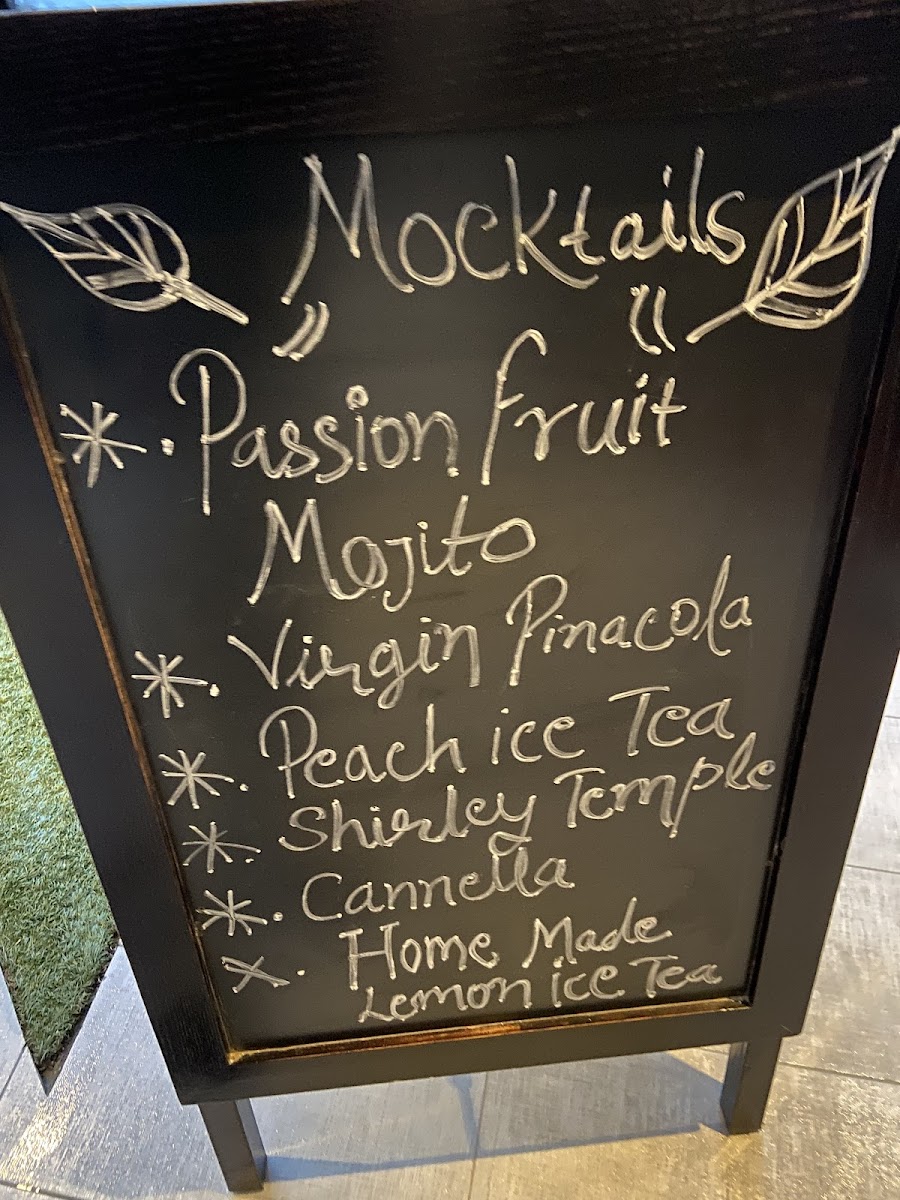 Mocktails
" "
*. Passion fruit
Mojito
*. Virgin Pinacola
*. Peach ice Tea
*. Shirley Temple
*. Cannella
x. Home Made
Lemon ice Tea